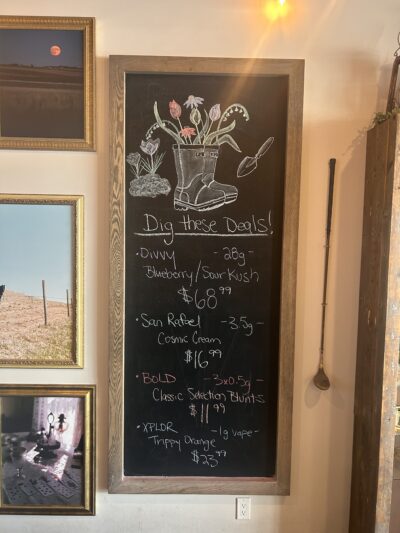 Dig these Deals!
• Divvy - 28g -
Blueberry/Sour Kush
$68.99
• San Rafael - 3.5g -
Cosmic Cream
$16.99
• BOLD - 3x0.5g -
Classic Selection Blunts
$11.99
• XPLOR - 1g vape -
Trippy Orange
$23.99